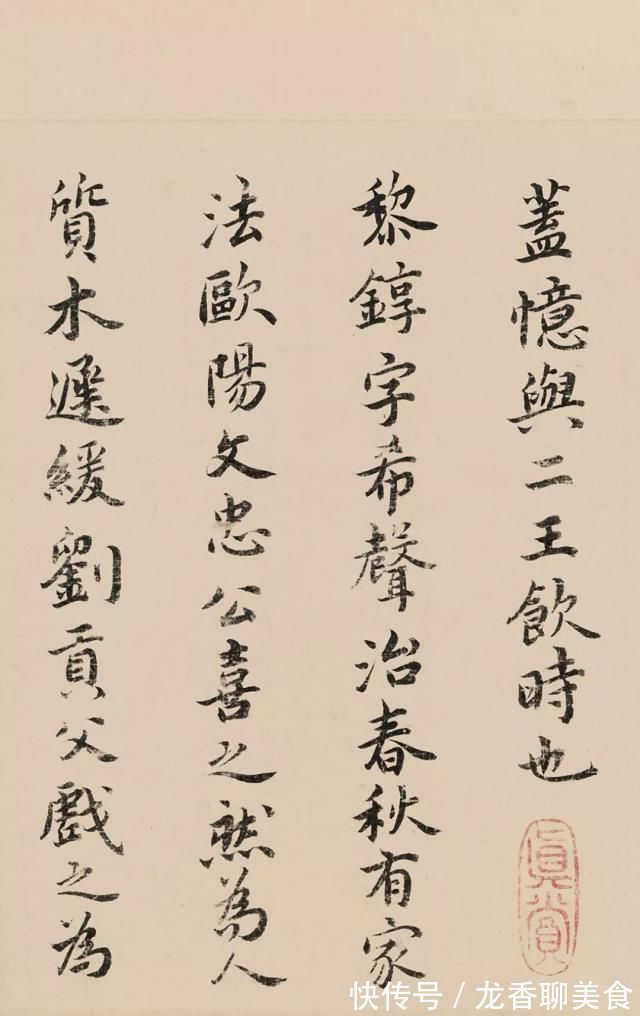 蓋憶與二王飲時也
黎錞字希聲治春秋有家
法歐陽文忠公喜之然為人
質木遲緩劉貢父戲之為
真賞
快传号／龙香聊美食